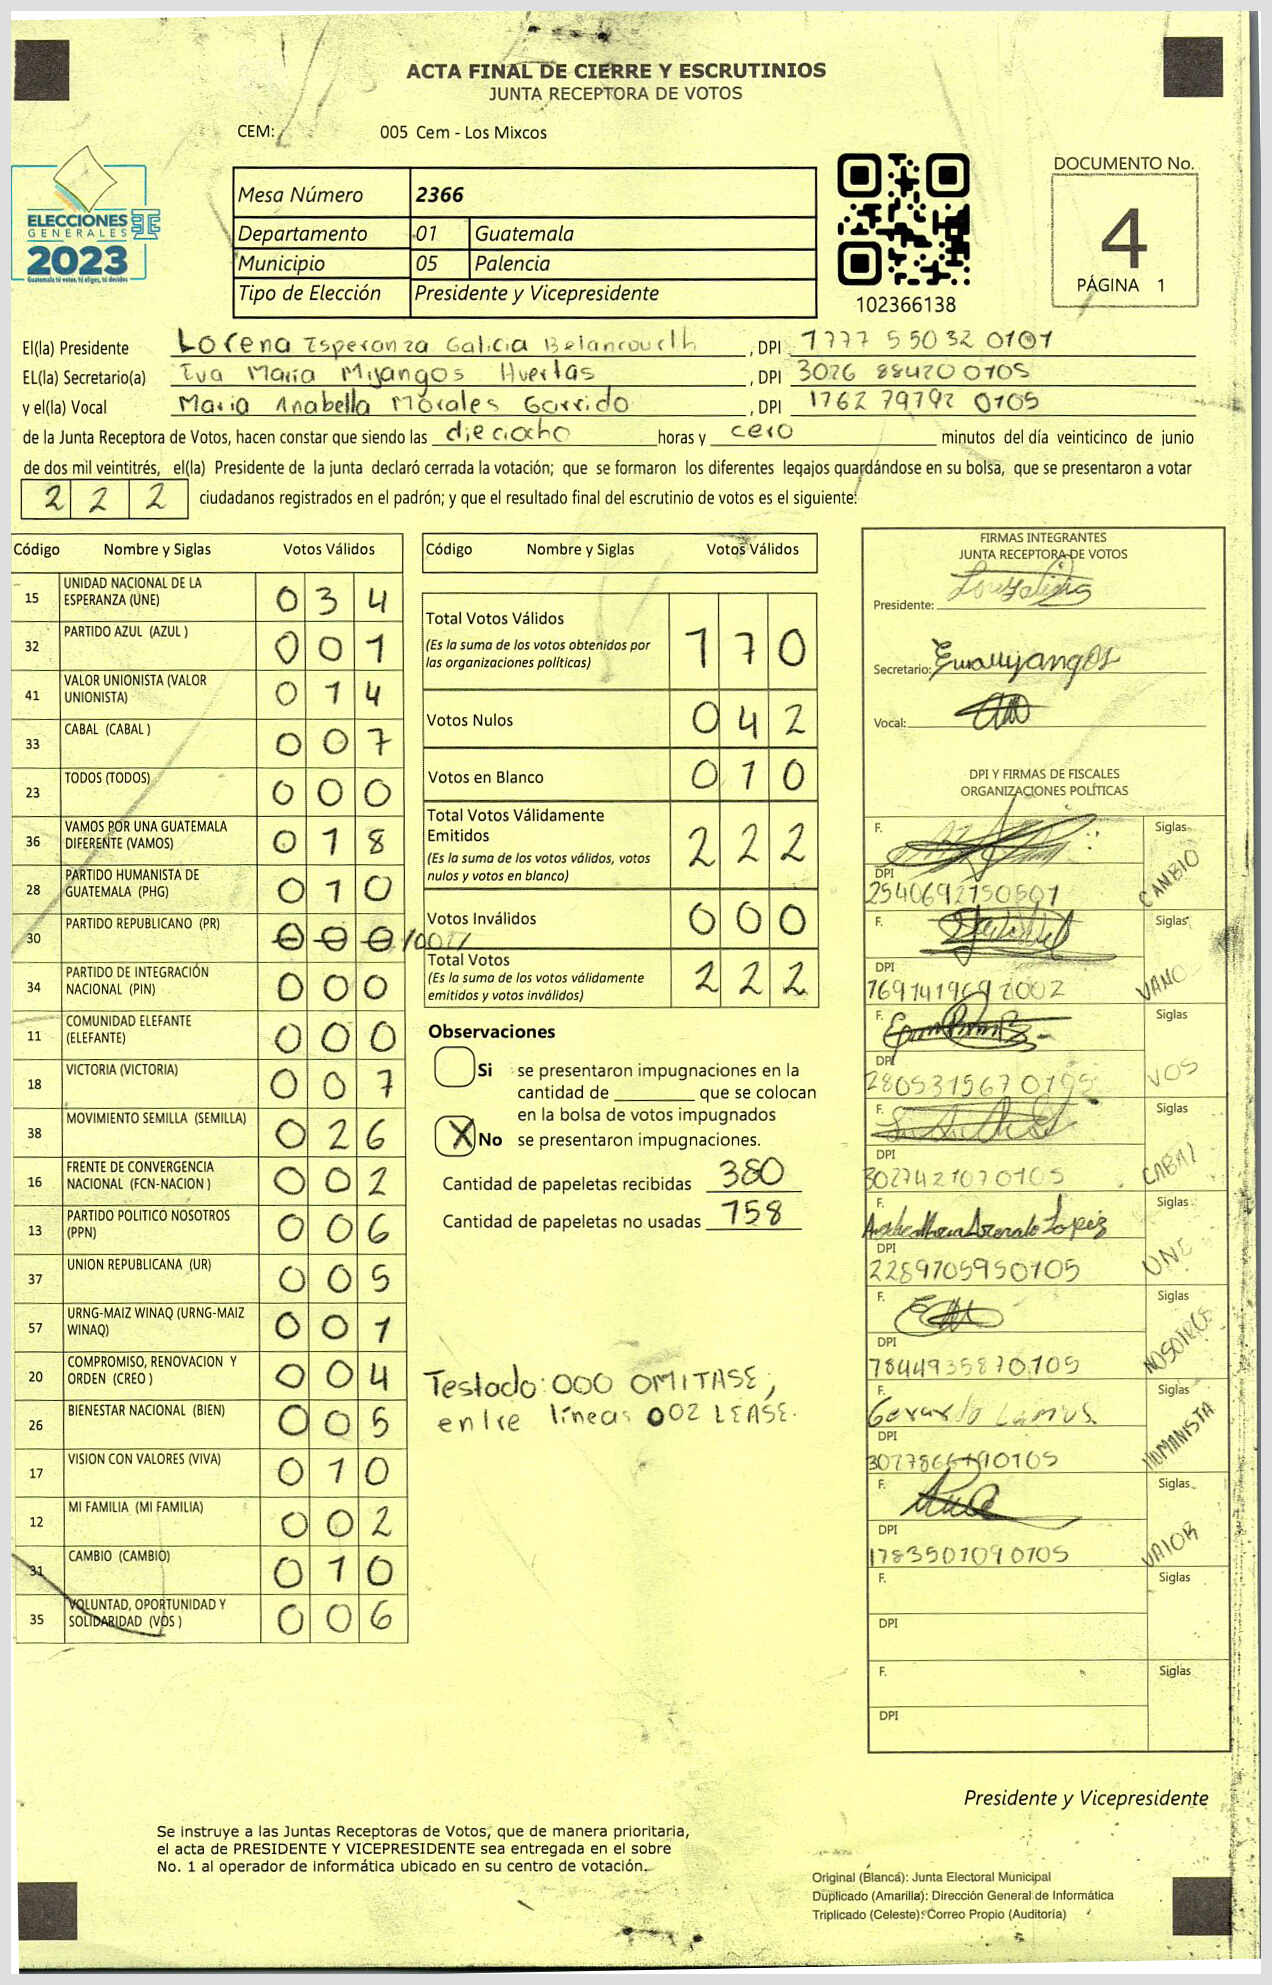 ACTA FINAL DE CIERRE Y ESCRUTINIOS
JUNTA RECEPTORA DE VOTOS
CEM: 005 Cem - Los Mixcos
ELECCIONES
GENERALES
2023
Guatemala tú votas, tú eliges, tú decides
Mesa Número 2366
Departamento 01 Guatemala
Municipio 05 Palencia
Tipo de Elección Presidente y Vicepresidente
102366138
DOCUMENTO No.
4
PÁGINA 1
El(la) Presidente Lorena Esperanza Galicia , DPI 1777 55032 0101
EL(la) Secretario(a) Eva Maria Mijangos Huertas , DPI 3026 88420 0105
y el(la) Vocal Maria Anabella Morales Garrido , DPI 1762 79792 0105
de la Junta Receptora de Votos, hacen constar que siendo las dieciocho horas y cero minutos del día veinticinco de junio
de dos mil veintitrés, el(la) Presidente de la junta declaró cerrada la votación; que se formaron los diferentes legajos guardándose en su bolsa, que se presentaron a votar
222 ciudadanos registrados en el padrón; y que el resultado final del escrutinio de votos es el siguiente:
Código Nombre y Siglas Votos Válidos
15 UNIDAD NACIONAL DE LA ESPERANZA (UNE) 034
32 PARTIDO AZUL (AZUL ) 001
41 VALOR UNIONISTA (VALOR UNIONISTA) 014
33 CABAL (CABAL ) 007
23 TODOS (TODOS) 000
36 VAMOS POR UNA GUATEMALA DIFERENTE (VAMOS) 018
28 PARTIDO HUMANISTA DE GUATEMALA (PHG) 010
30 PARTIDO REPUBLICANO (PR) 000
34 PARTIDO DE INTEGRACIÓN NACIONAL (PIN) 000
11 COMUNIDAD ELEFANTE (ELEFANTE) 000
18 VICTORIA (VICTORIA) 007
38 MOVIMIENTO SEMILLA (SEMILLA) 026
16 FRENTE DE CONVERGENCIA NACIONAL (FCN-NACION ) 002
13 PARTIDO POLITICO NOSOTROS (PPN) 006
37 UNION REPUBLICANA (UR) 005
57 URNG-MAIZ WINAQ (URNG-MAIZ WINAQ) 001
20 COMPROMISO, RENOVACION Y ORDEN (CREO ) 004
26 BIENESTAR NACIONAL (BIEN) 005
17 VISION CON VALORES (VIVA) 010
12 MI FAMILIA (MI FAMILIA) 002
31 CAMBIO (CAMBIO) 010
35 VOLUNTAD, OPORTUNIDAD Y SOLIDARIDAD (VOS ) 006
Código Nombre y Siglas Votos Válidos
Total Votos Válidos 170
(Es la suma de los votos obtenidos por
las organizaciones políticas)
Votos Nulos 042
Votos en Blanco 010
Total Votos Válidamente
Emitidos 222
(Es la suma de los votos válidos, votos
nulos y votos en blanco)
Votos Inválidos 000
Total Votos 222
(Es la suma de los votos válidamente
emitidos y votos inválidos)
Observaciones
Si se presentaron impugnaciones en la
cantidad de ________ que se colocan
en la bolsa de votos impugnados
X No se presentaron impugnaciones.
Cantidad de papeletas recibidas 380
Cantidad de papeletas no usadas 158
Testado: 000 OMITASE,
entre líneas 002 LEASE.
FIRMAS INTEGRANTES
JUNTA RECEPTORA DE VOTOS
Presidente:
Secretario:
Vocal:
DPI Y FIRMAS DE FISCALES
ORGANIZACIONES POLÍTICAS
F. Siglas CAMBIO
DPI
2540692750501
F. Siglas VAMOS
DPI
F. Siglas VOS
DPI
F. Siglas CABAL
DPI
3027421070105
F. Siglas UNE
DPI
2289705950105
F. Siglas NOSOTROS
DPI
F. Gerardo Lemus Siglas HUMANISTA
DPI
F. Siglas VALOR
DPI
1783501090105
F. Siglas
DPI
F. Siglas
DPI
Presidente y Vicepresidente
Se instruye a las Juntas Receptoras de Votos, que de manera prioritaria,
el acta de PRESIDENTE Y VICEPRESIDENTE sea entregada en el sobre
No. 1 al operador de informática ubicado en su centro de votación.
Original (Blanca): Junta Electoral Municipal
Duplicado (Amarilla): Dirección General de Informática
Triplicado (Celeste): Correo Propio (Auditoría)